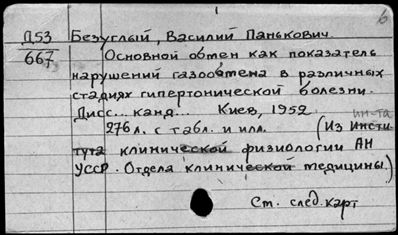 6
Д53 Безуглый, Василий Панькович.
667 Основной обмен как показатель
нарушений газообмена в различных
стадиях гипертонической болезни.
Дисс... канд... Киев, 1952.
ин-та
276 л. с табл. и илл. (Из Инсти
тута клинической физиологии АН
УССР. Отдела клинической медицины.)
См. след. карт